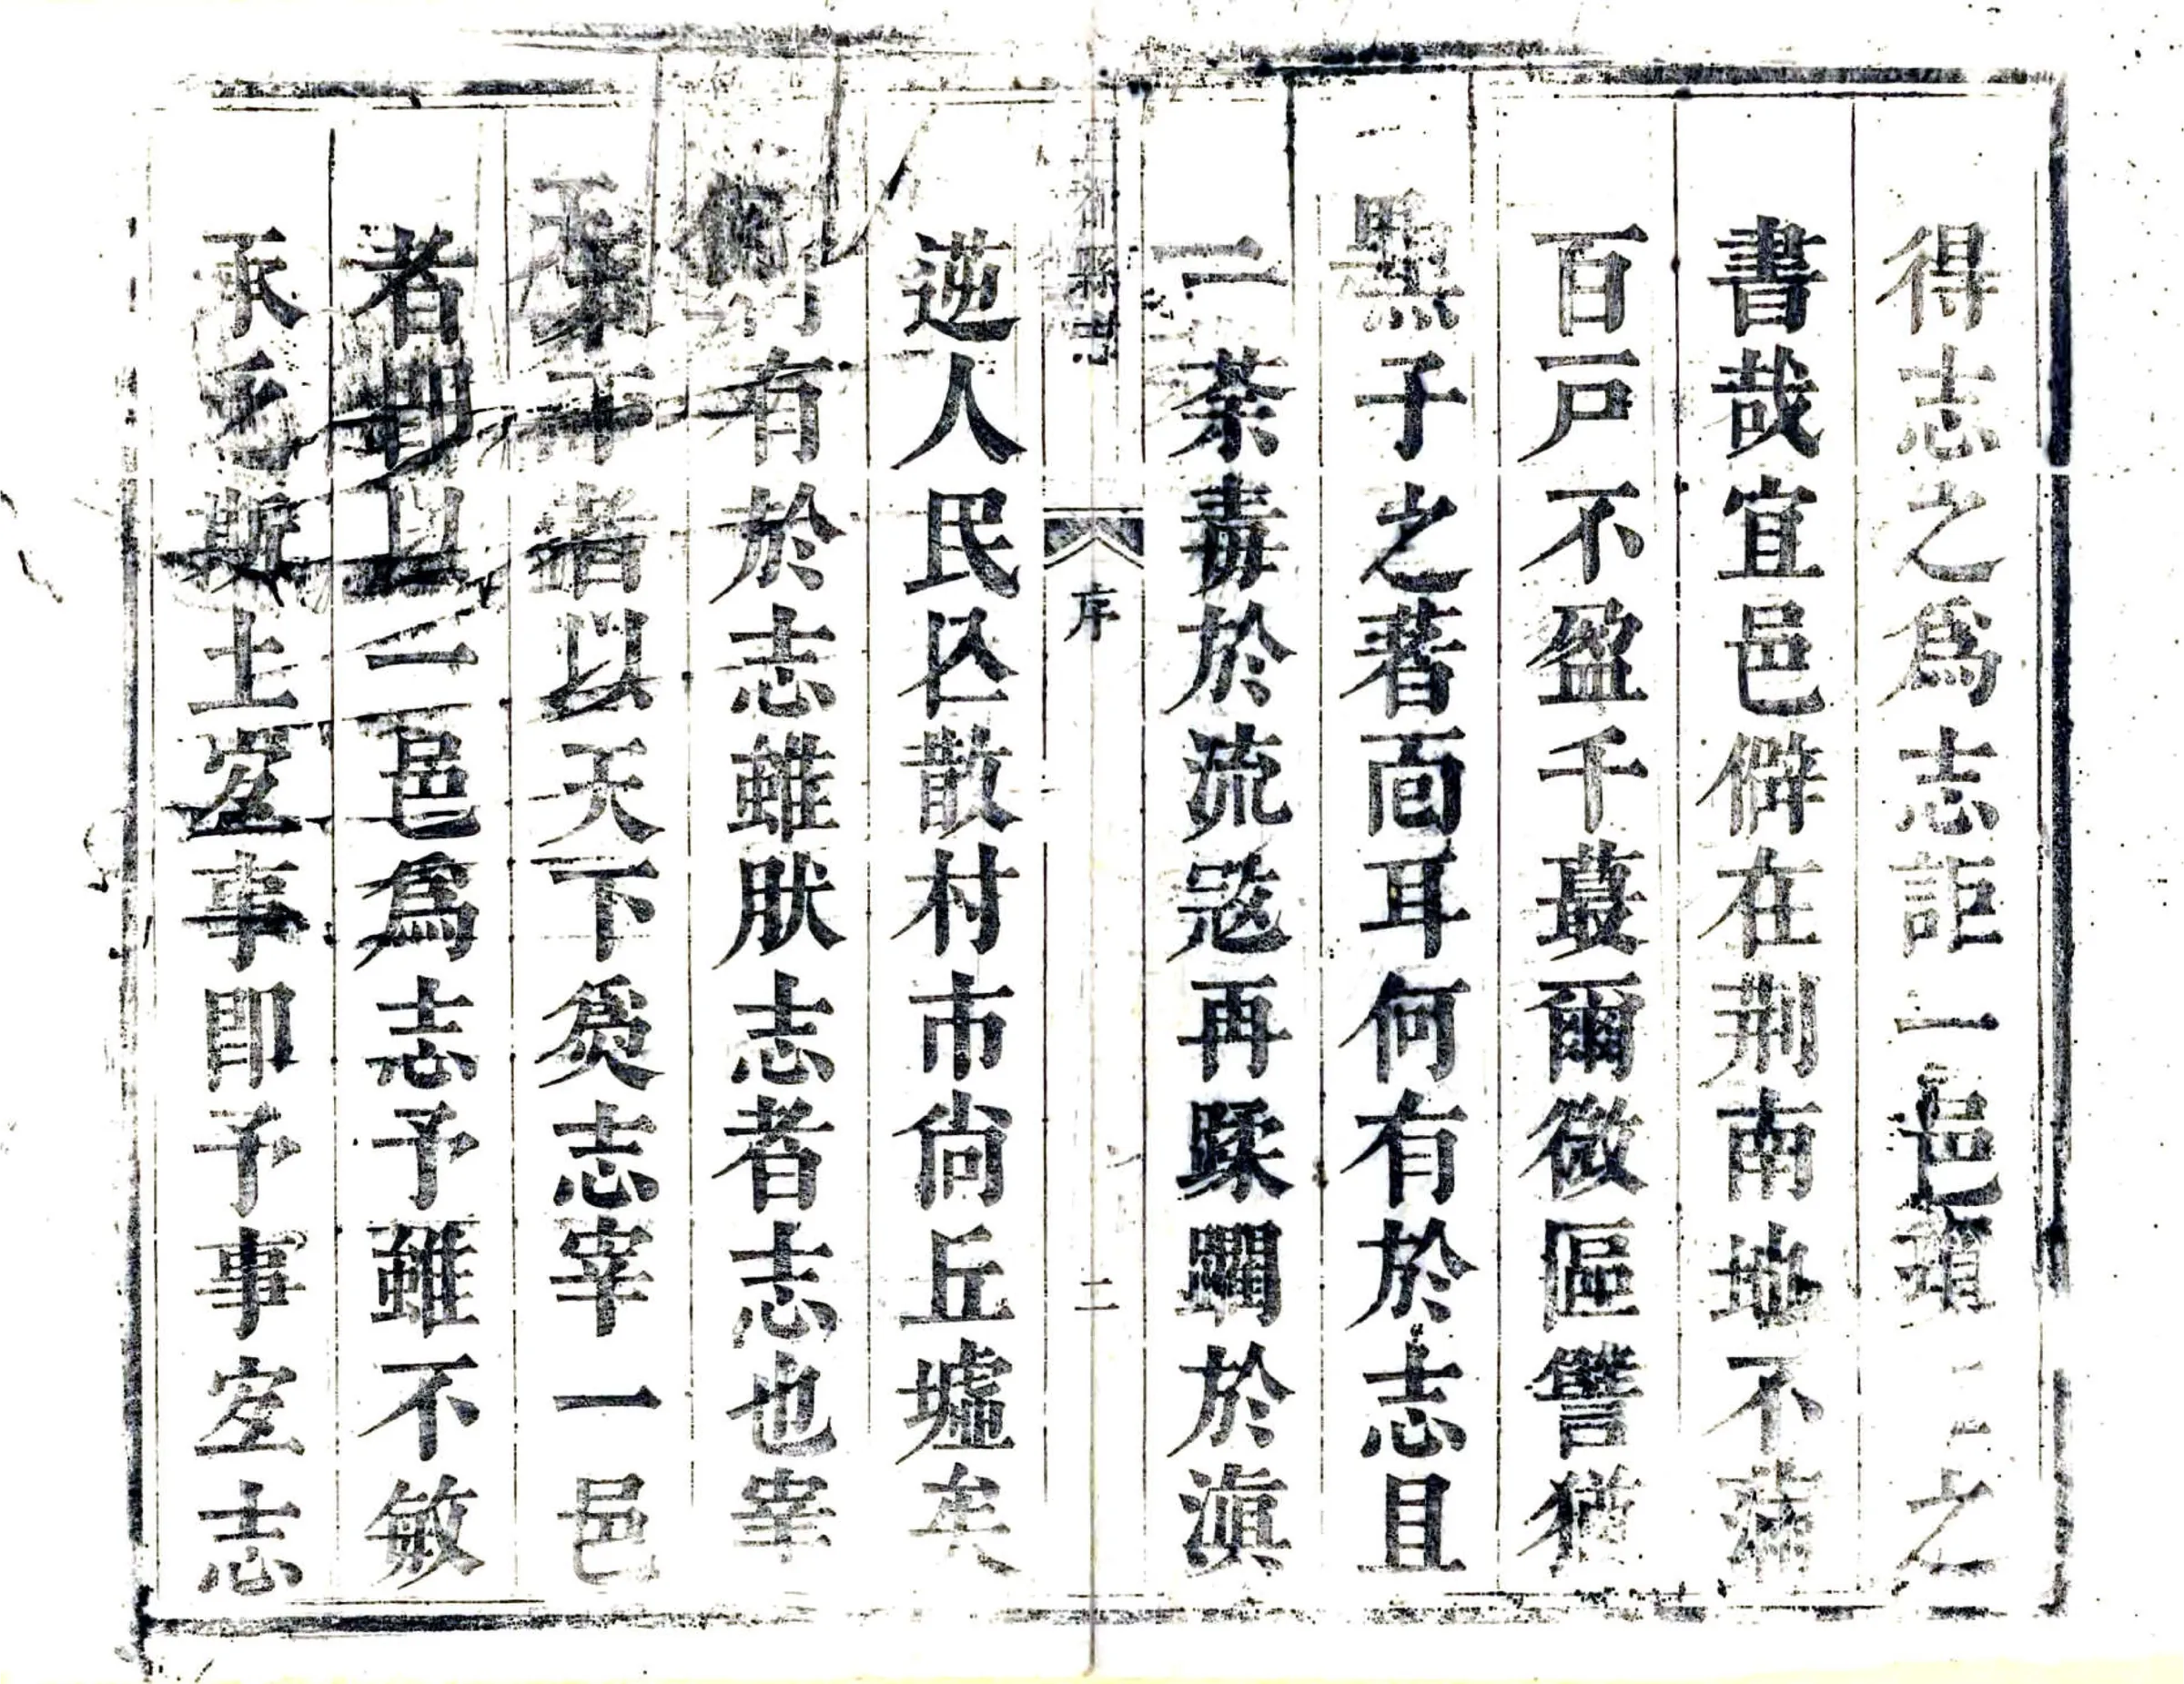 得志之爲志詎一邑瑣之
書哉宜邑僻在荆南地不蒲
百戸不盈千蕞爾微區譬猶
黑子之著靣耳何有於志且
一荼毒於流宼再蹂躙於滇
逆人民亾散村市尙丘墟矣
縣志 序 二
何有於志雖肰志者志也宰
天下者以天下爲志宰一邑
者卽以一邑爲志予雖不敏
承乏斯土宐事卽予事宐志